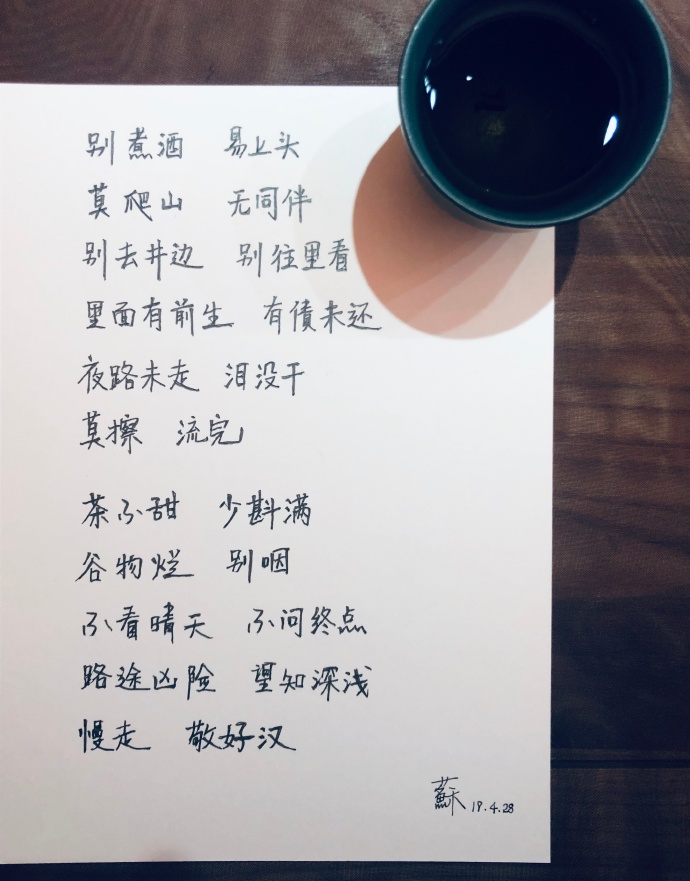 别煮酒 易上头
莫爬山 无同伴
别去井边 别往里看
里面有前生 有債未还
夜路未走 泪没干
莫擦 流完
茶不甜 少斟满
谷物烂 别咽
不看晴天 不问终点
路途凶险 望知深浅
慢走 敬好汉
蘇 19.4.28